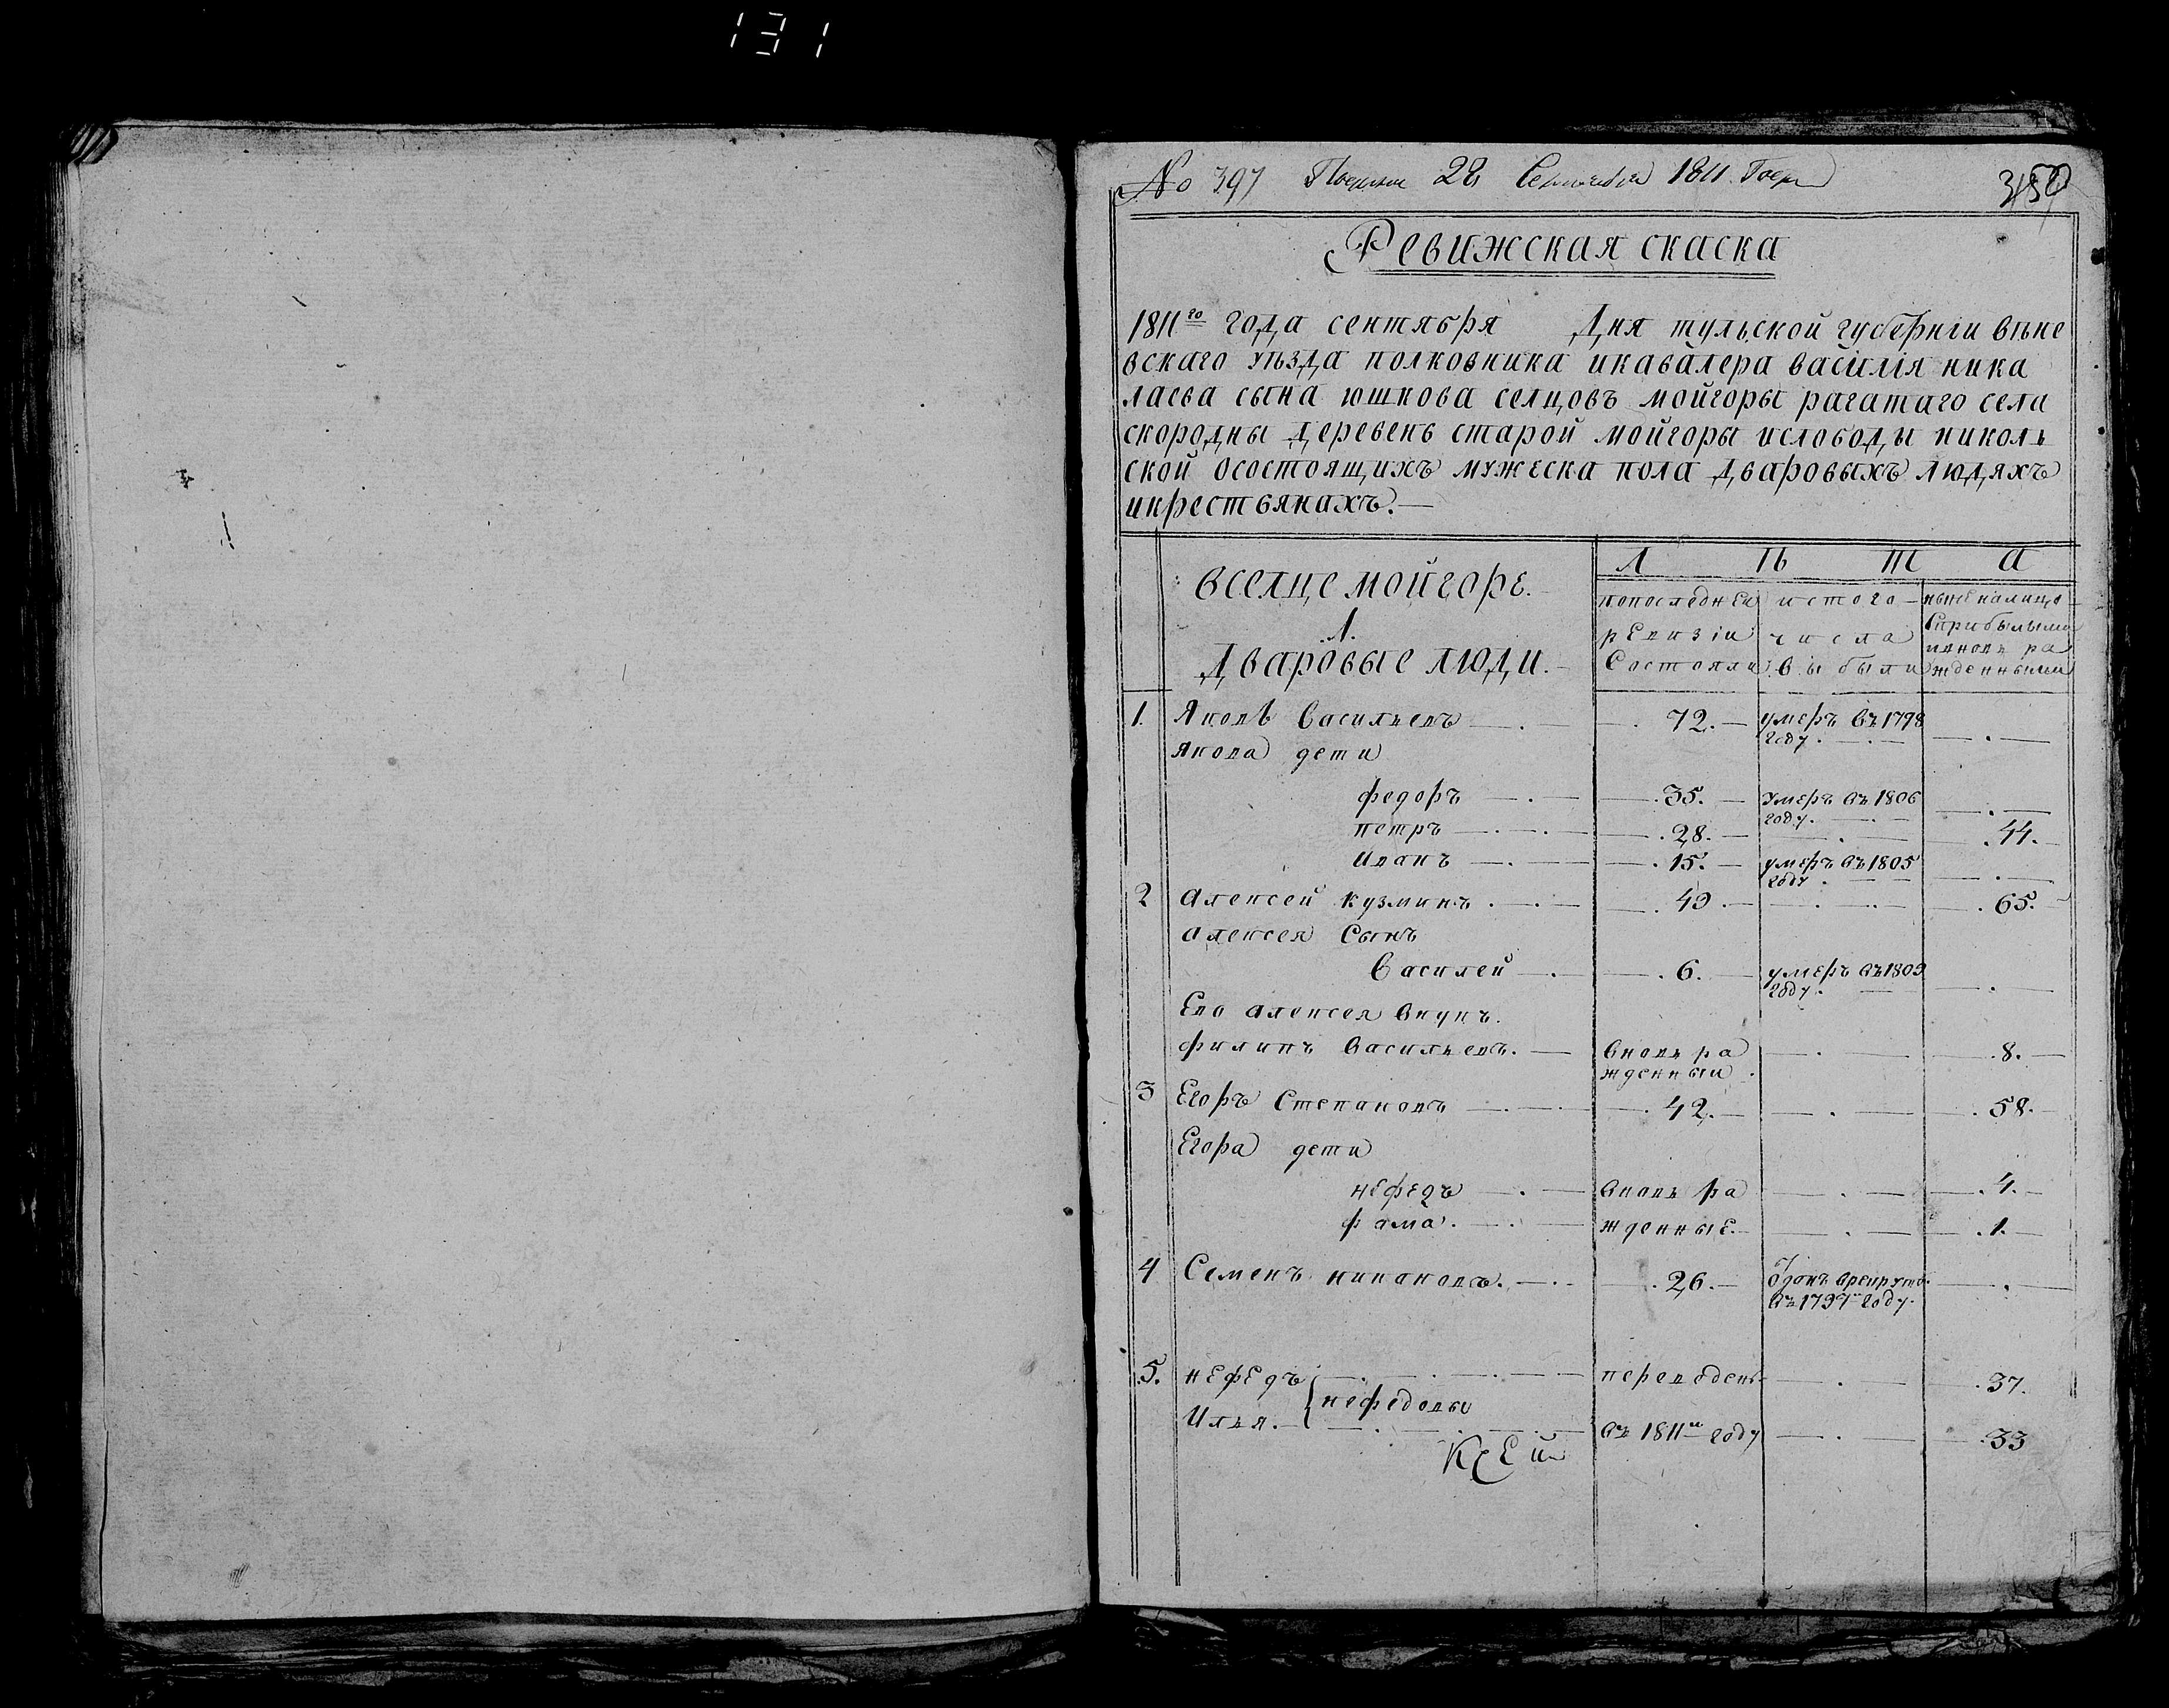 131
№ 397 28 Сентября 1811 Года
Ревижская скаска
1811го года сентября Дня тульской губернiи вѣне
вскаго уѣзда полковника икавалера василiя ника
лаева сына юшкова селцовъ мойгоры рагатаго села
скородны деревень старой мойгоры ислободы николь
ской осостоящихъ мужеска пола дваровыхъ людяхъ
икрестьянахъ.—
вселце мойгоре.
Л Ѣ Т А
1.
дваровые люди.—
попоследней ревизiи Состояли
истого числа выбыли
ныне налицо Сприбылыми ивновь ра жденными
1. Яковъ Васильевъ — . — . 72. — умеръ въ 1798 году. — . —
Якова дети
федоръ — . — . 35. — умеръ въ 1806 году. — . —
петръ — . — . 28. — . — . 44.
Иванъ — . — . 15. — умеръ въ 1805 году . — . —
2 Алексей кузминъ . — . 49. — . — . 65.
алексея Сынъ
Василей — . — . 6. — умеръ въ 1809 году. — . —
Ево алексея внукъ.
филипъ Васильевъ. — вновь ра — . — . 8. —
жденный .
3 Егоръ Степановъ — . — . 42. — . — . 58.
Егора дети
нефедъ — . — вновь ра — . — . 4. —
фама. — . — жденные. — . — . 1. —
4 Семенъ никановъ. — . 26. — Отданъ врекруты. — . —
въ 1797м году.
5. нефедъ — . — переведены — . — . 37.
нефедовы
Илья. — . — въ 1811м году — . — . 33